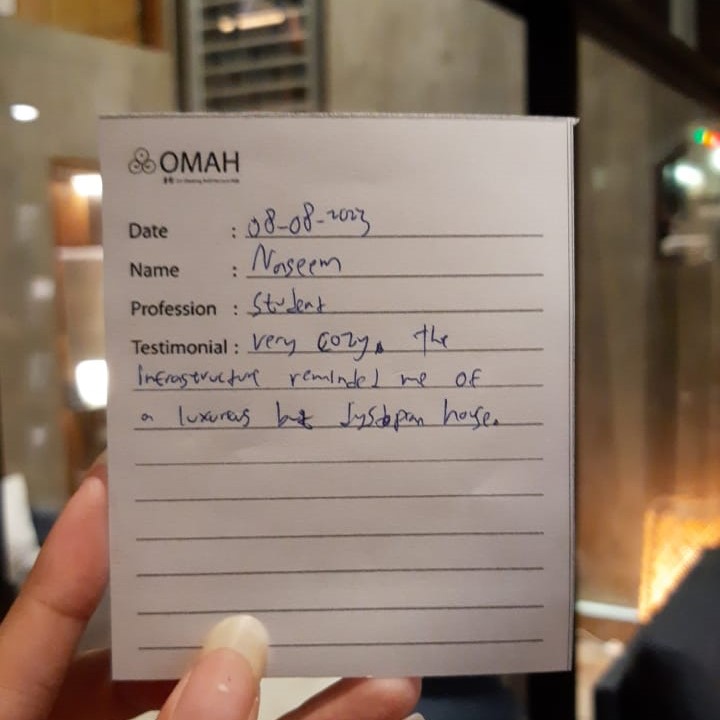 OMAH
Date : 08-08-2023
Name : Naseem
Profession : Student
Testimonial : very cozy. the
infrastructure reminded me of
a luxureus but dystopian house.